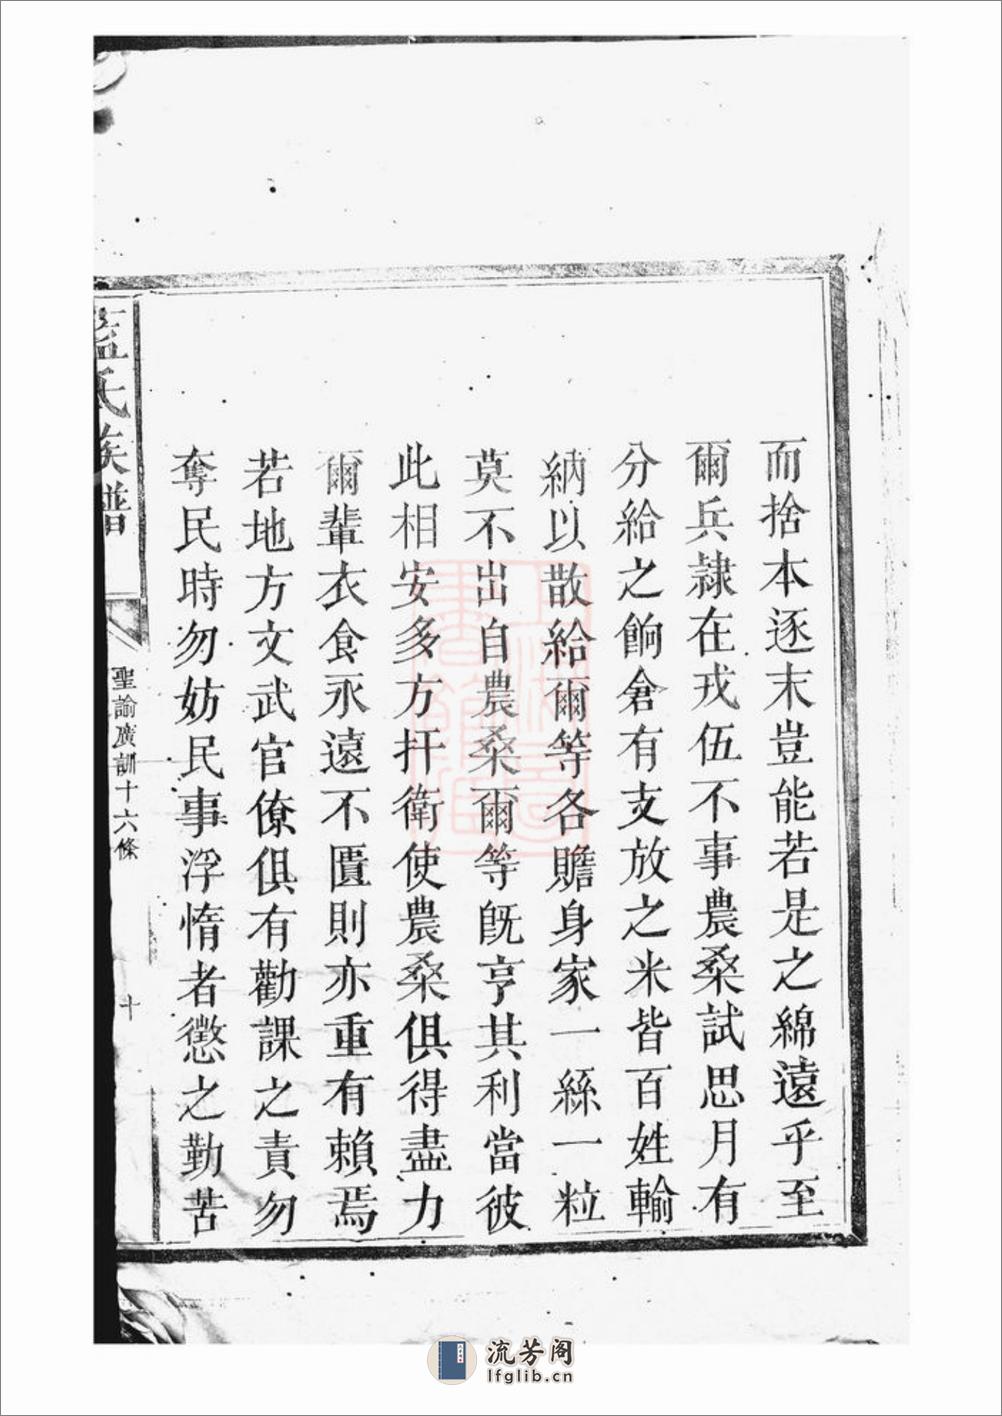 而捨本逐末豈能若是之綿遠乎至
爾兵隷在戎伍不事農桑試思月有
分給之餉倉有支放之米皆百姓輸
納以散給爾等各贍身家一絲一粒
莫不出自農桑爾等旣享其利當彼
此相安多方扞衛使農桑俱得盡力
爾輩衣食永遠不匱則亦重有賴焉
若地方文武官僚俱有勸課之責勿
奪民時勿妨民事浮惰者懲之勤苦
藍氏族譜
聖諭廣訓十六條
十
流芳阁
lfglib.cn